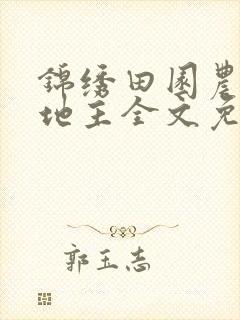 錦绣田园農
地主全文免
郭玉志